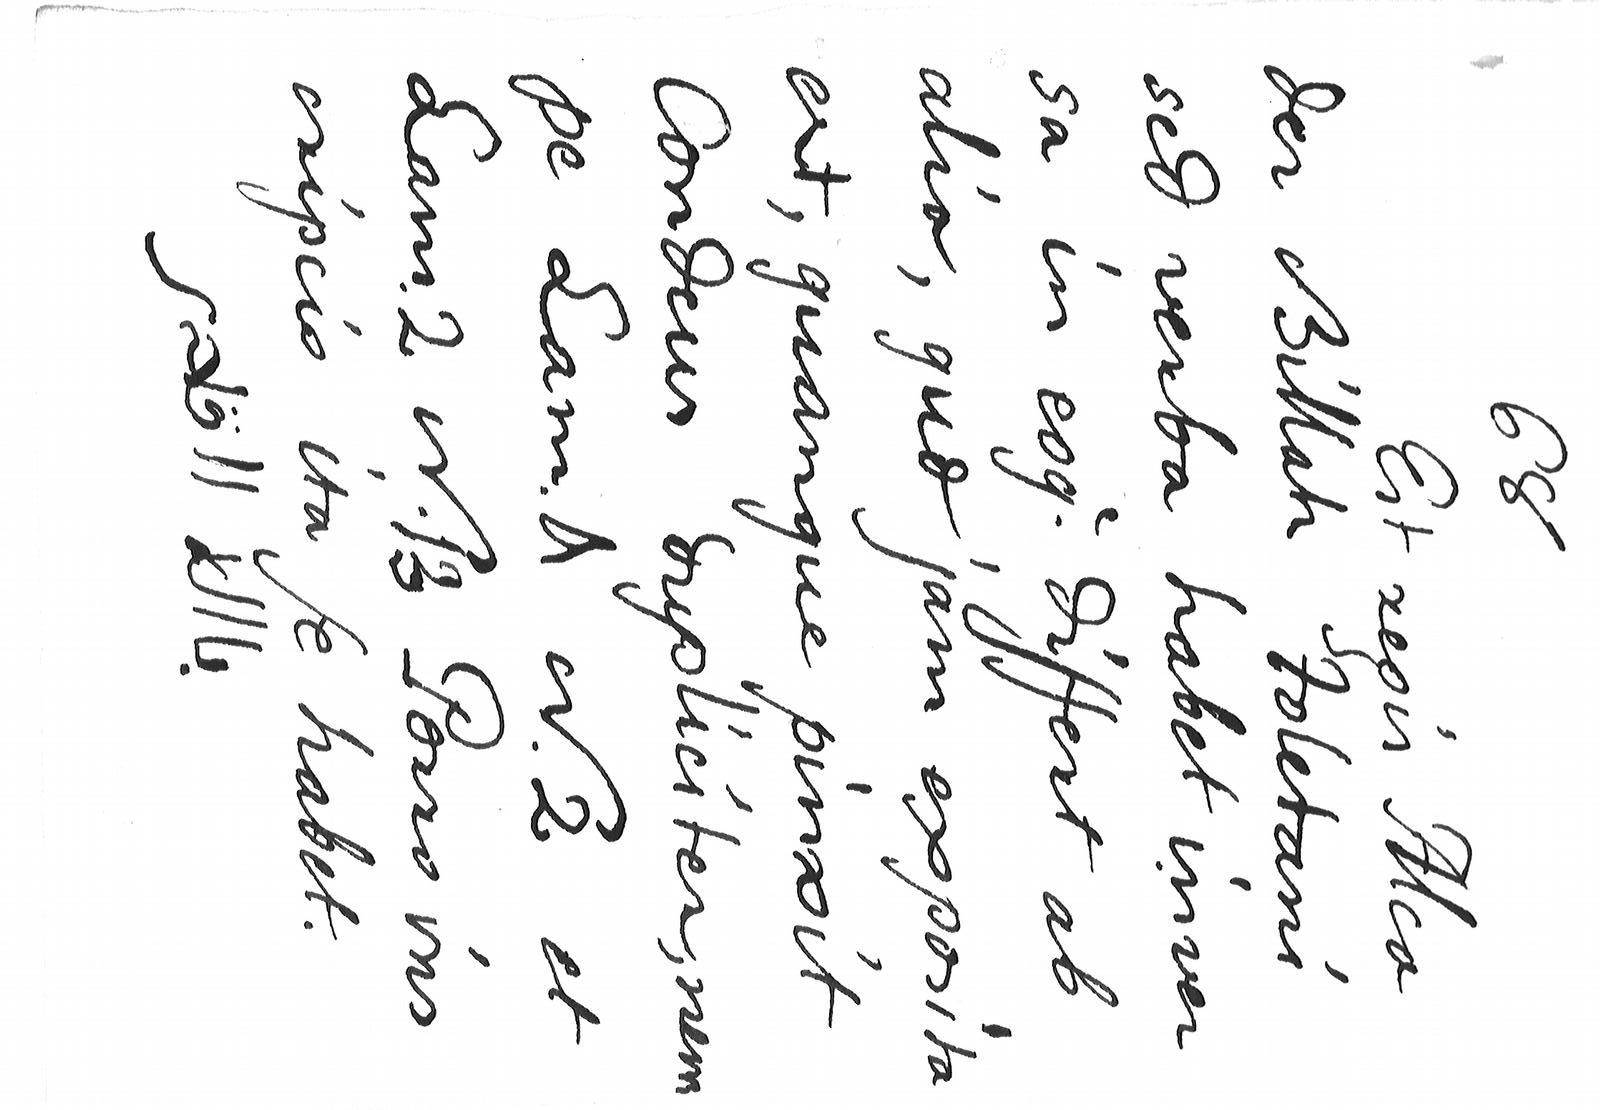 68
Est regis Alca
der Billah Toletani
sed verba habet inver
sa in Differt ab
alia, quo jam exposita
est, quamque pinxit
Condeus dupliciter, nem
pe Lam. 1 N. 2 et
Lam. 2 N. 13 Porro ins
cripcio ita se habet.